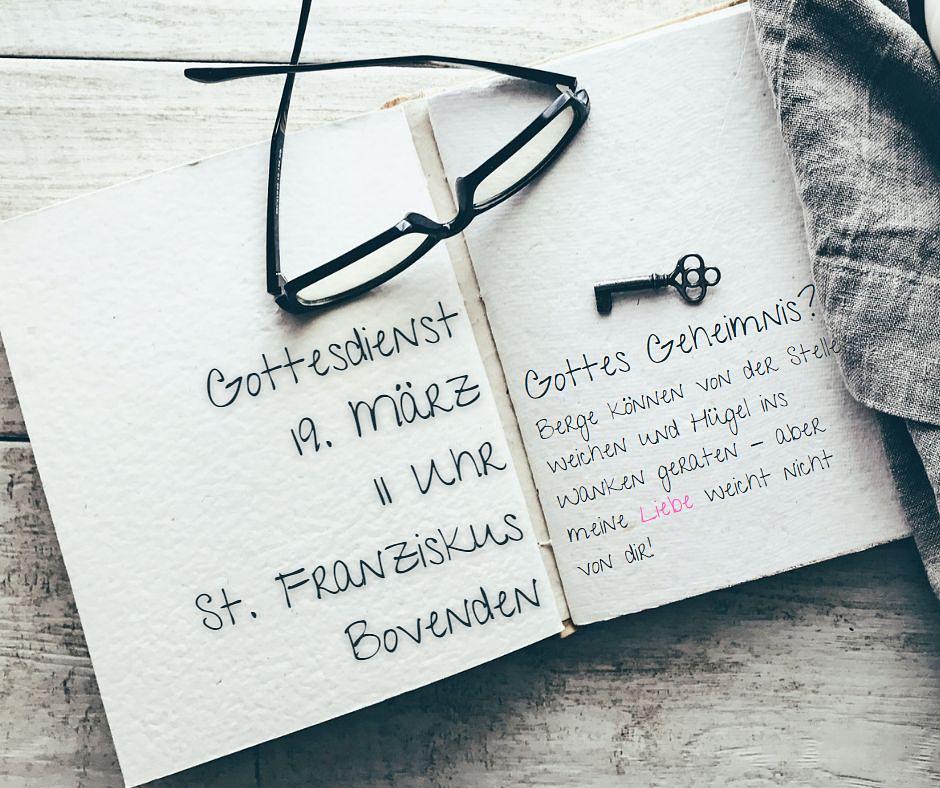 Gottesdienst
19. März
11 Uhr
St. Franziskus
Bovenden
Gottes Geheimnis?
Berge können von der Stelle
weichen und Hügel ins
wanken geraten - aber
meine Liebe weicht nicht
von dir!